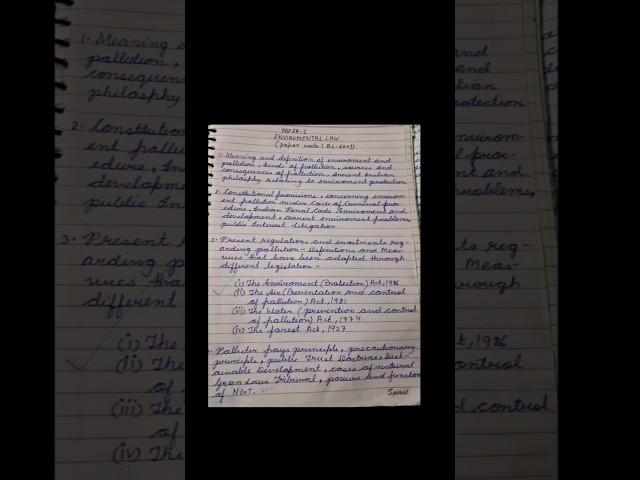 PAPER-I
ENVIROMENTAL LAW
1. Meaning and definition of enviroment and
pollution, kinds of pollution, sources and
consequences of pollution, Ancient Indian
philosphy relating to enviroment protection
2. Constitutional provisions, concerning envirom-
ent pollution under Code of Criminal proc-
edure, Indian Penal Code Enviroment and
development, current enviroment problems,
public Interest litigation
3. Present regulations and enactments reg-
arding pollution - Definitions and Meas-
ures that have been adopted through
different legislation -
(i) The Enviroment (Protection) Act, 1986
(ii) The Air (Prevention and control
of pollution) Act, 1981
(iii) The Water (prevention and control
of pollution) Act, 1974
(iv) The forest Act, 1927
Polluter pays principle, precautionary
principle, public Trust Doctrine Sust-
ainable Development, cases of natural
Green Laws Tribunal, powers and function
of NGT.
Speral